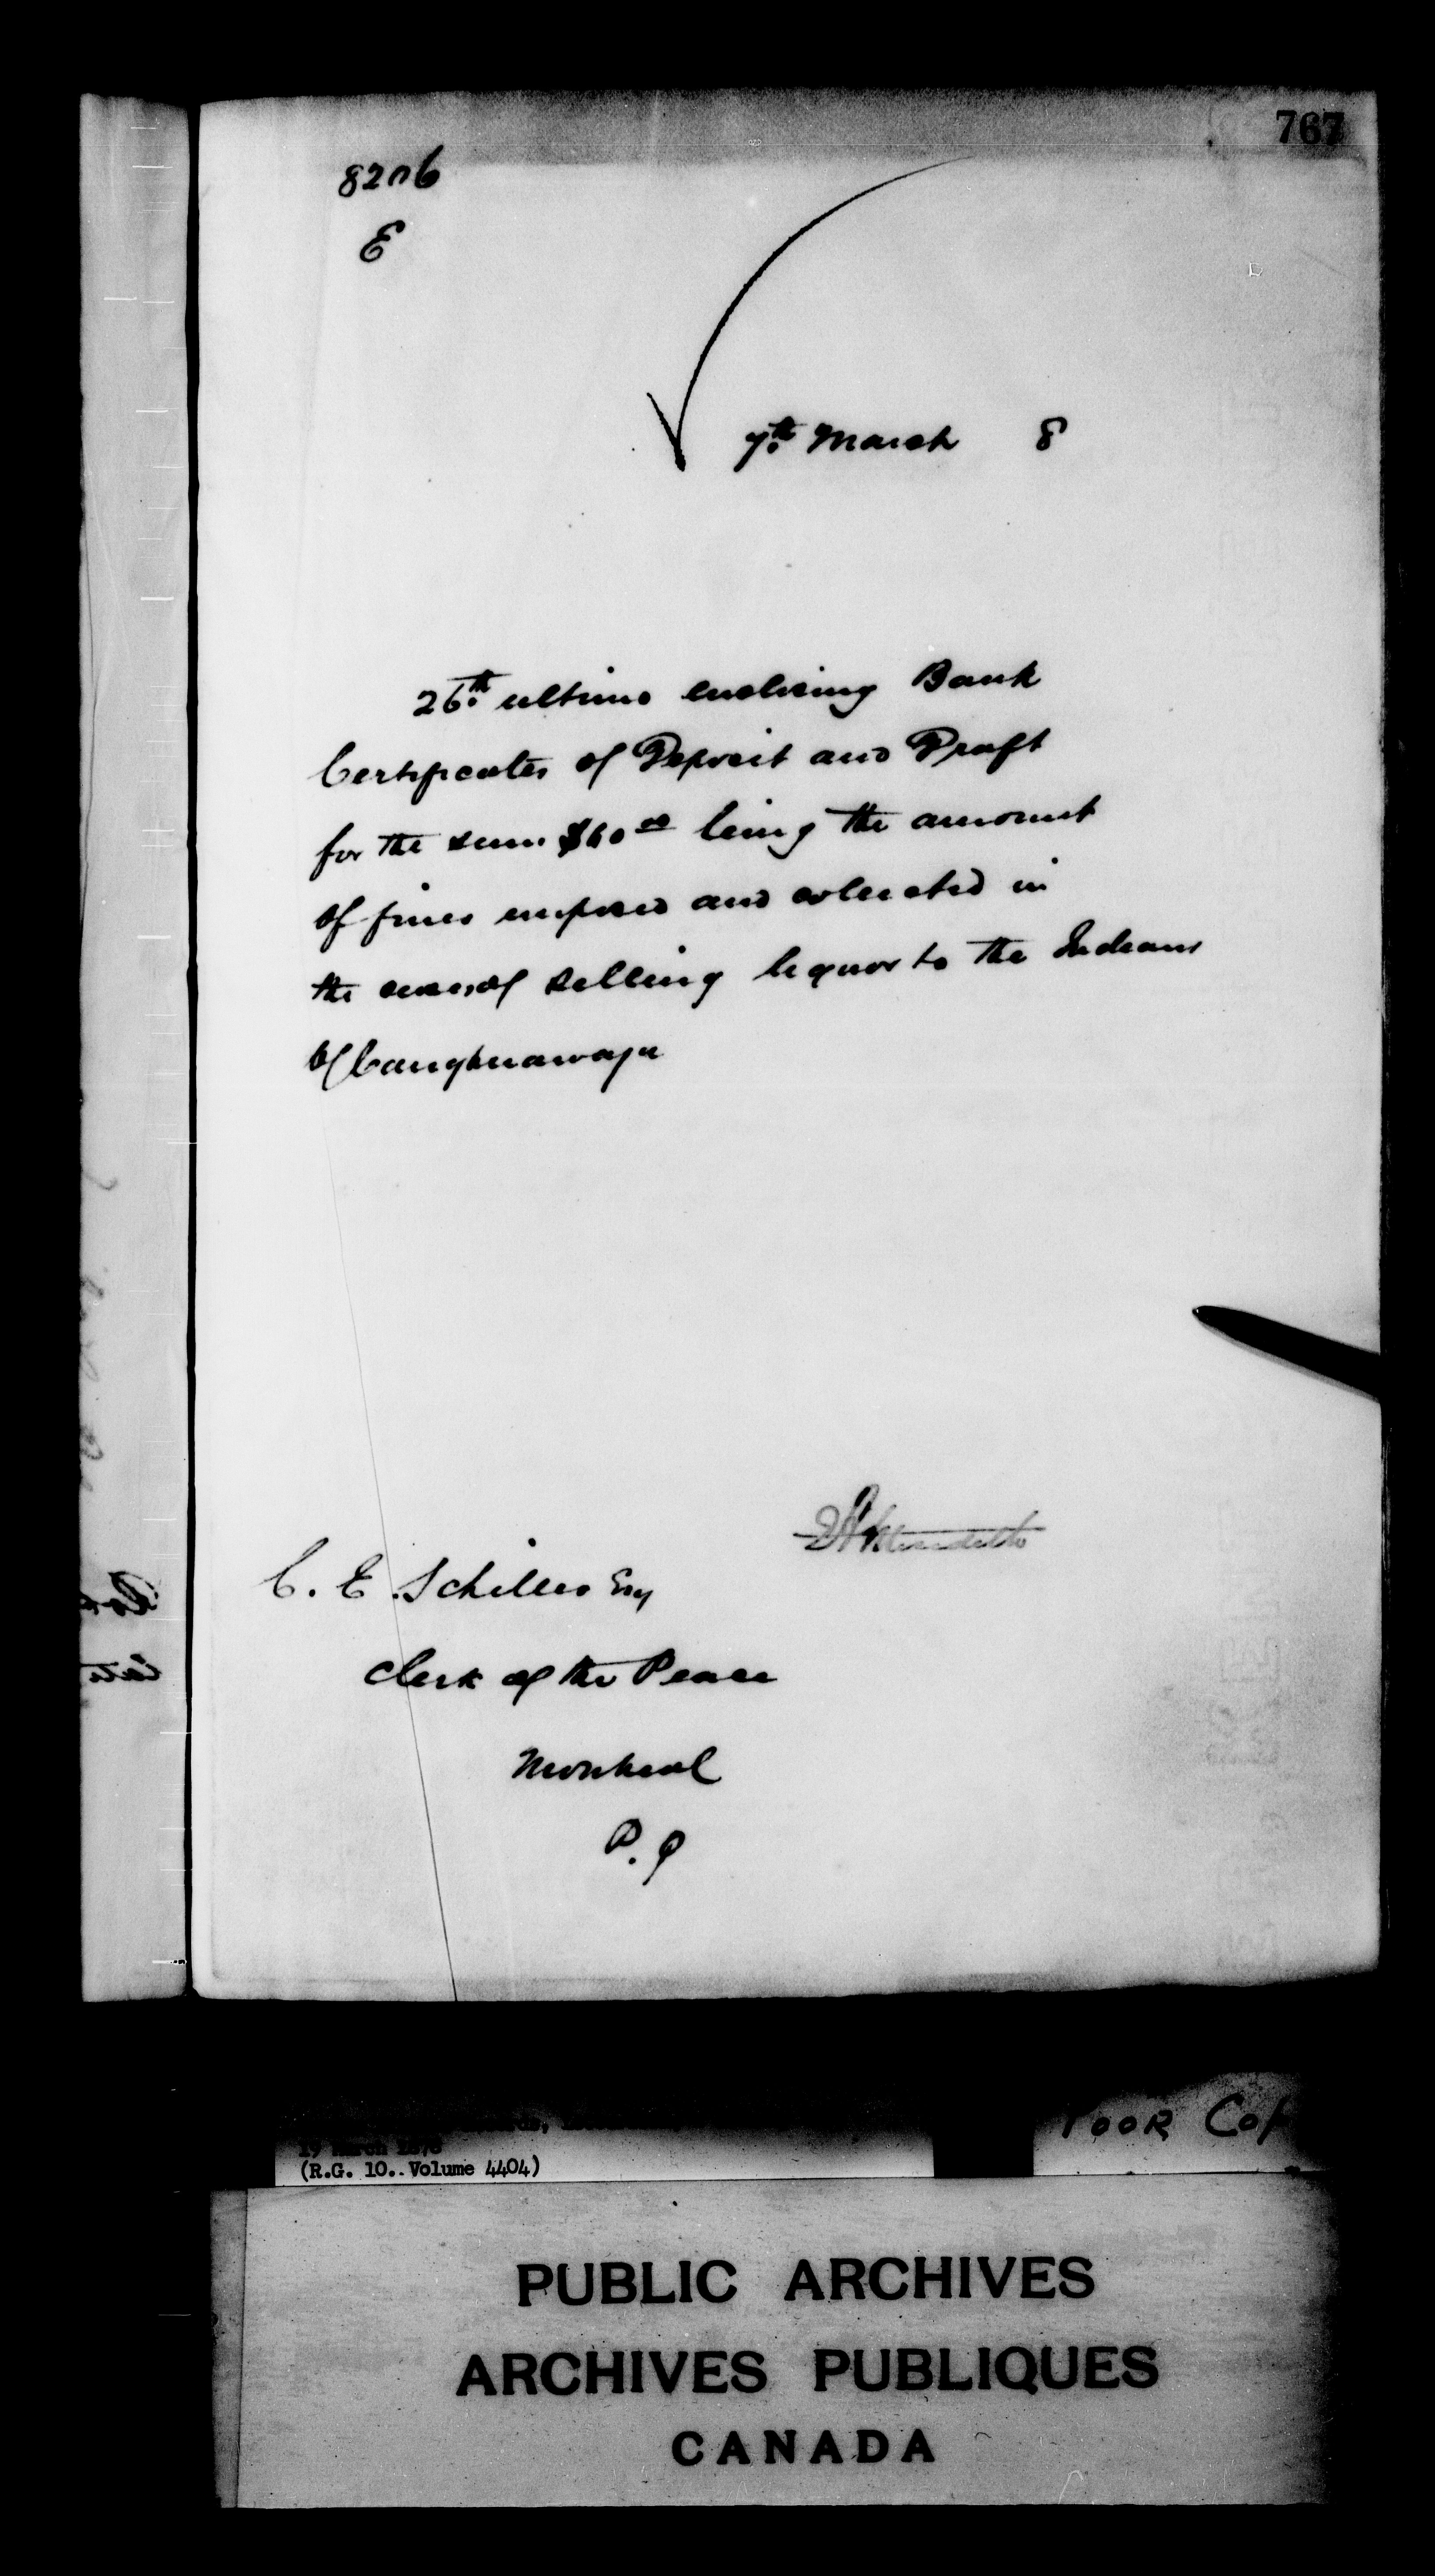 767
8206
E
7th March 8
26th ultimo enclosing Bank
Certificates of Deposit and Draft
for the sum $60 00 being the amount
of fines imposed and collected in
the cases of selling liquor to the Indians
of Caughnawaga
C. E. Schiller Esq
Clerk of the Peace
Montreal
P. Q
19 March 1878
(R.G. 10.. Volume 4404)
POOR
PUBLIC ARCHIVES
ARCHIVES PUBLIQUES
CANADA